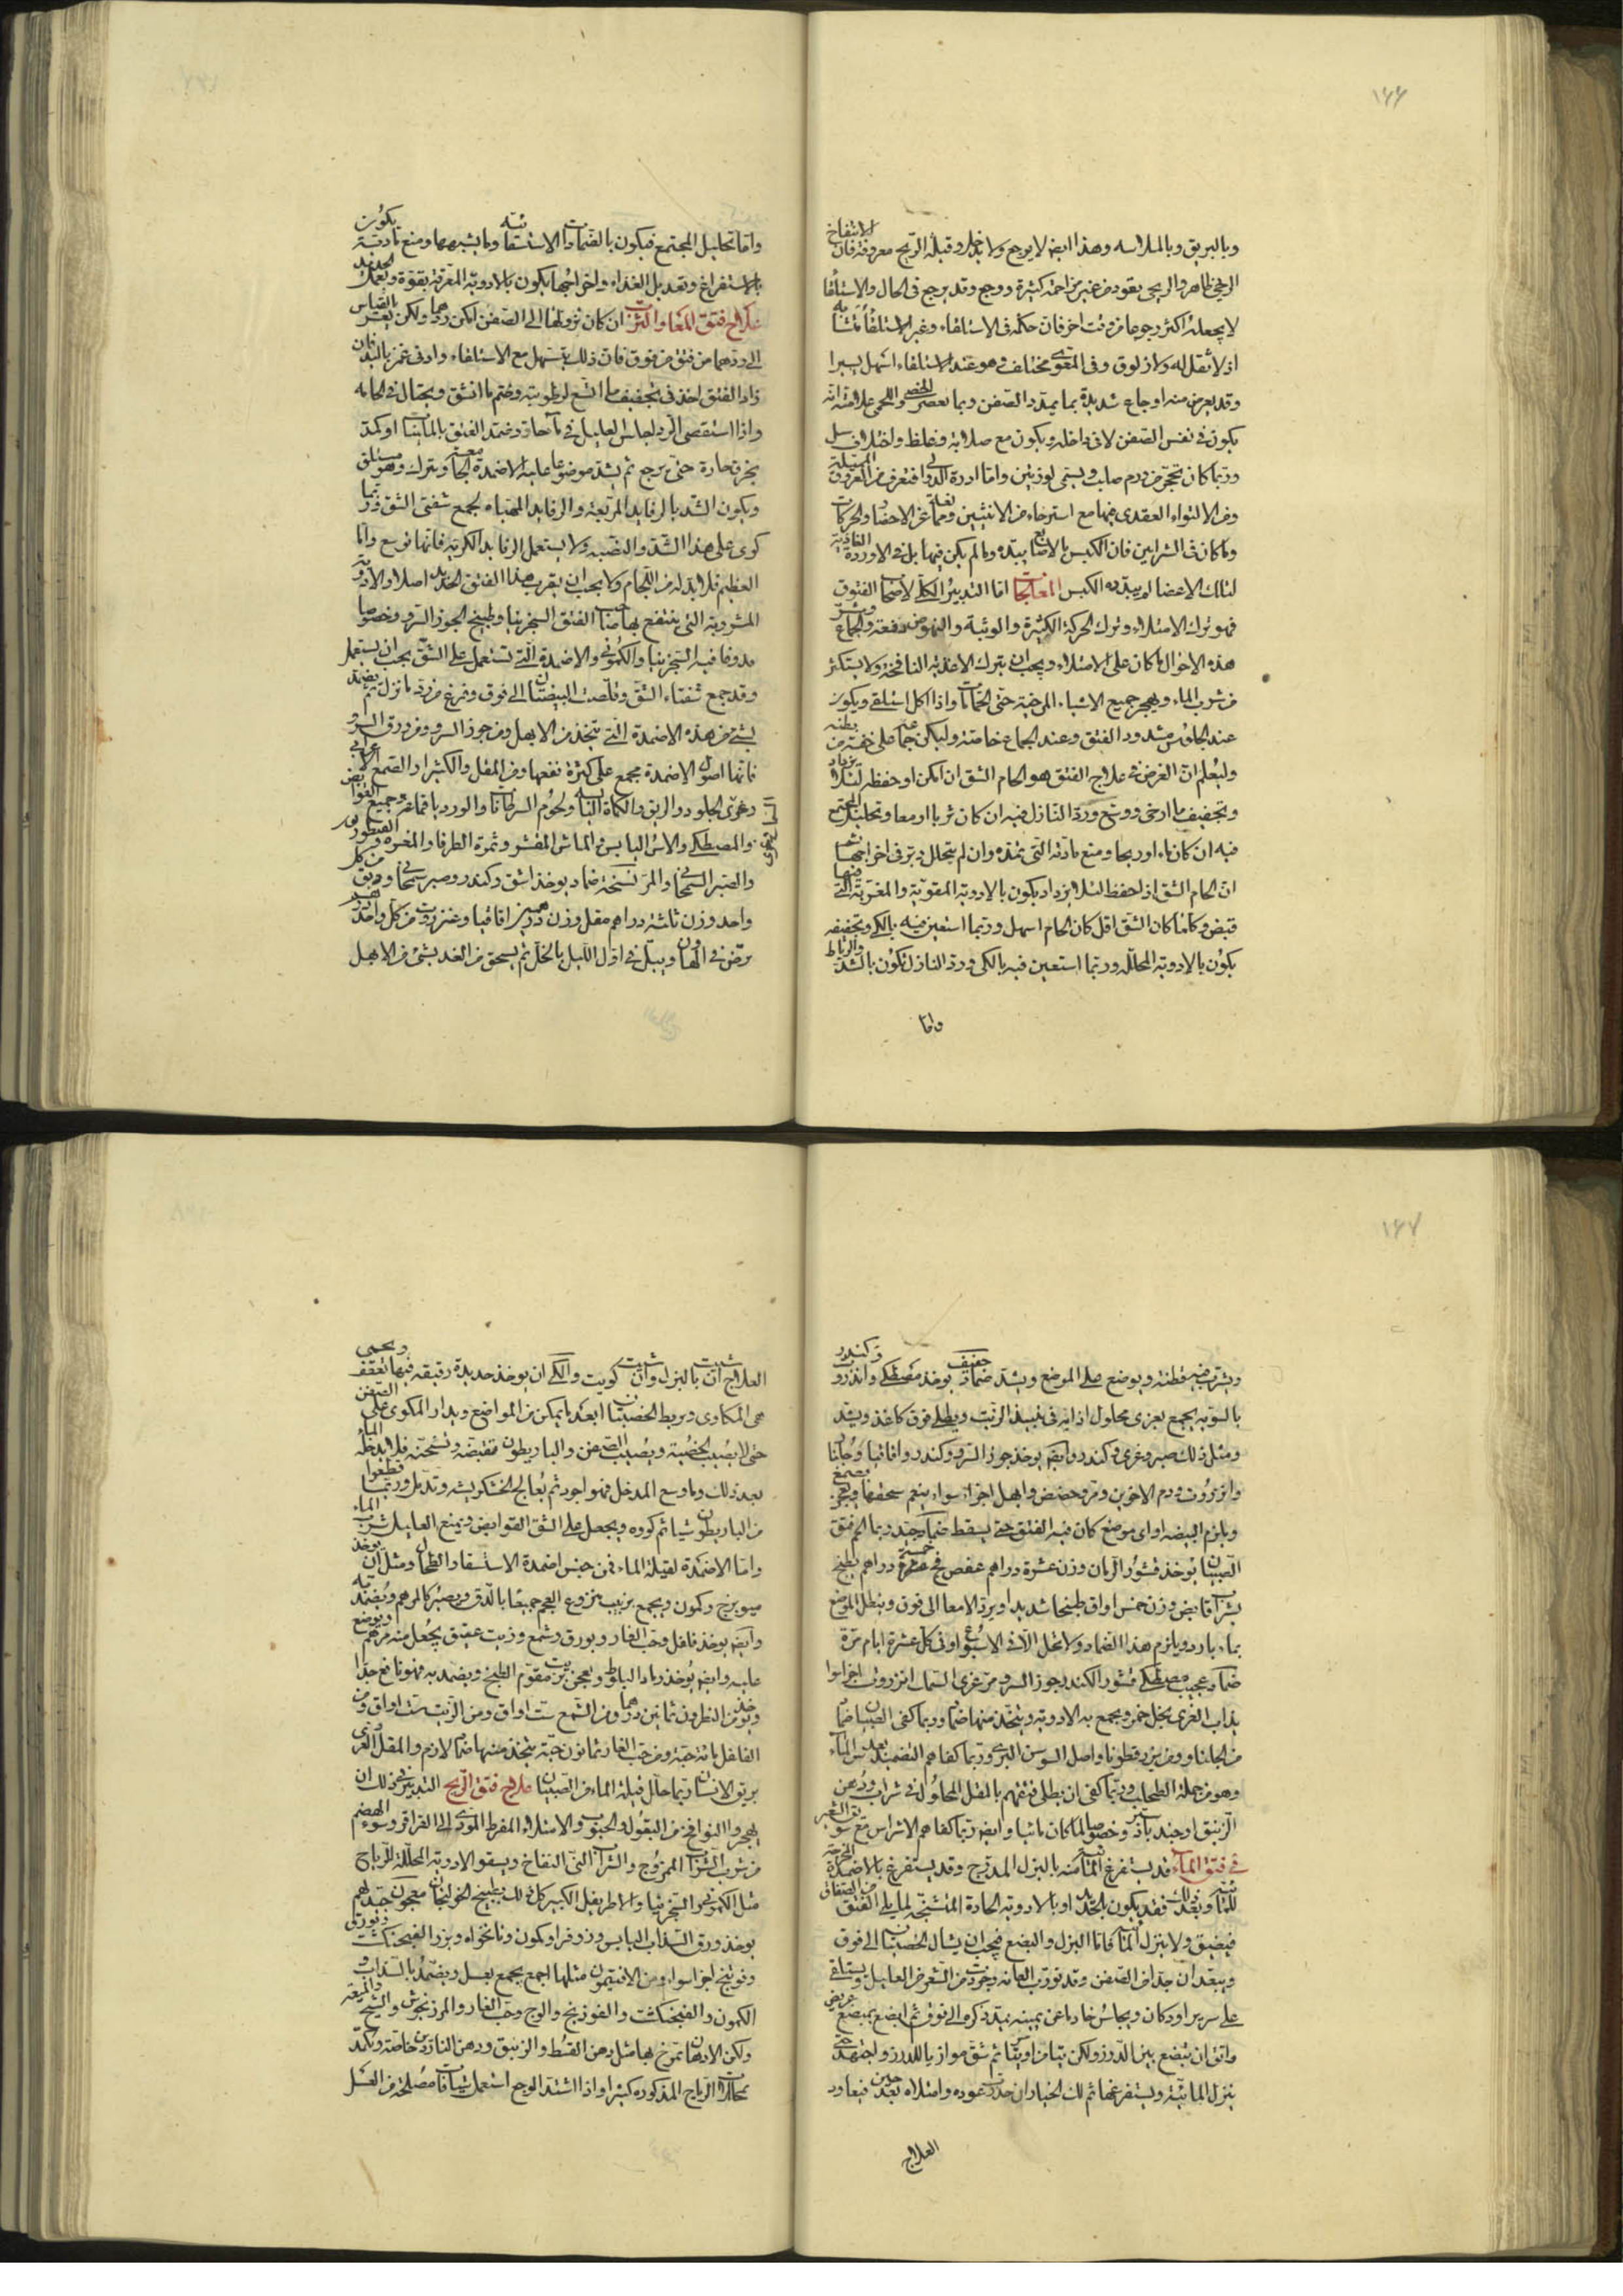 ١٦٦
وبالبريق وبالملاسه وهذا ايض لا يرجع ولا يدخل وقبله الريح معروفة فان الانتفاخ
الريحى ظاهر والريحى يعود من غير مزاحمة كثيرة ووجع وقد يرجع فى الحال والاستلقا
لا يجعله اكثر رجوعا من وقت اخر فان حكمه فى الاستلقاء وغير الاستلقاء متشابه
اذ لا ثقل له ولا زلوق وفى المعوى مختلف وهو عند الاستلقاء اسهل يسيرا
وقد يعرض منه اوجاع شديدة بما يمدد الصفن وبما يعصر الخصى واللحمى علامته انه
يكون فى نفس الصفن لا فى داخله ويكون مع صلابة وغلظ واختلاف شكل
وربما كان تحجر من ورم صلب ويسمى لورنس واما ادرة الدوالى فتعرف من العروق الممتلية
ومن الالتواء العقدى فيها مع استرخاء من الانثيين وعن الاحضار والحركات
وما كان فى الشرايين فان الكبس بالاصابع يبدده وما لم يكن فيها بل فى الاوردة الغاذية
لتلك الاعضا لم يبدده الكبس المعالجات اما التدبير الكلى لاصحاب الفتوق
فهو ترك الامتلاء وترك الحركة الكثيرة والوثبة والنهوض دفعة والجماع وشر
هذه الاحوال ما كان على الامتلاء ويجب ان يترك الاغذية النافخة ولا يستكثر
من شرب الماء ويهجر جميع الاشياء المرخية حتى الحمامات واذا اكل استلقى ويكون
عند الجلوس مشدود الفتق وعند الجماع خاصة وليكن جماعه على خفة من بطنه
وليعلم ان الغرض فى علاج الفتق هو الحام الشق ان امكن او حفظه لئلا يزداد
وتجفيف ما ارخى ووسع ورد النازل فيه ان كان ثربا او معا وتحليل المجتمع
فيه ان كان ماء او ريحا ومنع مادته التى تمده وان لم يتحلل دبر فى اخراجها
ان الحام الشق او حفظه لئلا يزداد يكون بالادوية المقوية والمغرية التى فيها
قبض وكلما كان الشق اقل كان الحام اسهل وربما استعين فيه بالكى وتجفيفه
يكون بالادوية المحللة وربما استعين فيه بالكى ورد النازل يكون بالشد والرباط
واما
واما تحليل المجتمع فيكون بالضمادات الاستسقائية وما يشبهها ومنع مادته يكون
بالاستفراغ وتعديل الغذاء واخراجها يكون بالادوية المعرقة بقوة وبعمل الحديد
علاج فتق المعا والثرب ان كان نزولهما الى الصفن امكن ردهما ولكن يعسر بالقياس
الى ردهما من فتق من فوق فان ذلك يسهل مع الاستلقاء وادنى غمز باليد فان
زاد الفتق اخذ فى تجفيف ما اتسع لرطوبته وضم ما انشق ويحتال فى الحامه
واذا استقصى الرد اجلس العليل فى ماء حار وضمد الفتق بالملينات او كمد
بخرق حارة حتى يرجع ثم يشد موضوعا عليه الاضمدة الجامعة ويترك وهو مستلق
ويكون الشد بالرفايد المربعة والرفايد المهياه لجمع شفتى الشق وربما
كوى على هذا الشد والنصبه ولا يستعمل الرفايد الكرية فانها توسع واما
العظيم فلا بد له من اللجام ولا يجب ان يقرب هذا الفتق الحديد اصلا والادوية
المشروبة التى ينتفع بها اصحاب الفتق السجزينيا وطبيخ الجوز السرو وخصوصا
مدوفا فيه السجزينيا والكمونى والاضمدة التى تستعمل على الشق يجب ان يستعمل
وقد جمع شفتاء الشق وقلصت البيضتان الى فوق وفرغ من رد ما نزل ثم يضمد
بشئ من هذه الاضمدة التى تتخذ من الابهل ومن جوز السرو ومن ورق السرو
فانها اصول الاضمدة مجمع على كثرة نفعها ومن المقل والكثيرا والصمغ العربى
وغرى الجلود والدبق والكماة اليابسه ولحوم السرطانات والورد باقماعه وجميع القوابض
والمصطكى والاس اليابس والماش المقشر وثمرة الطرفا والمغره
والصبر السمنجانى والمر نسخة ضماد يوخذ اشق وكندر وصبر سمنجانى ودبق من كل
واحد وزن ثلثة دراهم مقل وزن درهمين اقاقيا وعنزروت من كل واحد درهم
يرض فى الهاون ويبل فى اول الليل بالخل ثم يسحق من الغد بشئ من الابهل
١٦٧
ويشرب فيه قطنة ويوضع على الموضع ويشد ضماد خفيف يوخذ مصطكى وانزروت وكندر
بالسوية يجمع بغرى محلول اذابه فى نبيذ الزبيب ويطلى فوق كاغذ ويشد
ومثل ذلك صبر وغرى وكندر وايضا يوخذ جوز السرو وكندر واقاقيا وجلنار
وانزروت ودم الاخوين ومر وحضض وابهل اجزاء سواء ينعم سحقها ويعجن بصمغ
ويلزم البيضه او اى موضع كان فيه الفتق حتى يسقط ضماد جيد ربما الحم فتق
الصبيان يوخذ قشور الرمان وزن عشرة دراهم عفص فج خمسة دراهم يطبخ
بشراب قابض وزن خمس اواق طبخا شديدا ويرد الامعا الى فوق وينطل الموضع
بماء بارد ويلزم هذا الضماد ولا تحل الا فى الاسبوع او فى كل عشرة ايام مرة
ضماد عجيب مصطكى قشور الكندر جوز السرو مر غرى السمك انزروت اجزاء سواء
يذاب الغرى بخل خمر ويجمع به الادوية ويتخذ منها ضماد وربما كفى الصبيان ضماد
من الجلنار ومن بزر قطونا واصل السوسن البرى وربما كفاهم التضميد بعدس الماء
وهو من جملة الطحالب وربما كفى ان يطلى فتقهم بالمقل المحلول فى شراب ودهن
الزنبق او جندبادستر وخصوصا لما كان مائيا وايضا ربما كفاهم الاشراس مع سويق الشعير
فى فتق الماء قد يستفرغ الماء منه بالبزل المدرج وقد يستفرغ بالاضمدة المخرجة
للماء وبعد ذلك فقد يكون بالحديد او بالادوية الحادة المشنجة لما يلى الفتق من الصفاق
فيضيق ولا ينزل المائية فاما البزل والبضع فيجب ان يشال الخصيتان الى فوق
ويبعد ان جدا من الصفن وقد نورت العانه وجردت من الشعر من العليل ويستلقى
على سرير او دكان ويجلس خادما عن يمينه يمدد ذكره الى فوق ثم ابضع بمبضع عريض
واتق ان تبضع بين الدرز ولكن تيامن او تياسر ثم شق موازيا للدرز واجتهد حتى
ينزل المائية ويستفرغها ثم لك الخيار ان حدث عوده وامتلاه بعد حين فيعاود
العلاج
العلاج ان شيت بالبزل وان شيت كويت والكى ان يوخذ حديدة رقيقه فيها تعقف ويحمى
حمى المكاوى ويربط الخصيتان ابعد ما يمكن من المواضع ويدار المكوى على الصفن
حتى لا يصيب الخصية ويصيب الصفن والباريطون فتقبضه وتشنجه فلا يدخله الماء
بعد ذلك وما وسع المدخل فهو اجود ثم يعالج الخشكريشه وتدمل وربما قطعوا
من الباريطون شيا ثم كووه ويجعل على الشق القوابض ويمنع العليل شرب الماء
واما الاضمدة لقيلة الماء فمن جنس اضمدة الاستسقا والطحال ومثل ان يوخذ
ميويزج وكمون ويجمع بزبيب منزوع العجم جميعا بالدق ويصير كالمرهم ويضمد به
وايضا يوخذ فلفل وحب الغار وبورق وشمع وزيت عتيق يجعل منه مرهم ويوضع
عليه وايضا يوخذ رماد البلوط ويعجن بزيت مقوم الطبخ ويضمد به فهو نافع جدا
ويوخذ من النطرون ثمانين درهما ومن الشمع ست اواق ومن الزيت ست اواق ومن
الفلفل مائة حبة ومن حب الغار ثمانون حبة يتخذ منها ضماد لازم والمقل العربى
بريق الانسان ربما حلل قيلة الماء من الصبيان علاج فتق الريح التدبير فى ذلك ان
يهجروا النوافخ من البقول والحبوب والامتلاء المفرط المودى الى القراقر وسوء الهضم
من شرب الشراب الممزوج والشراب النى النفاخ ويسقوا الادوية المحللة للرياح
مثل الكمونى والسجزينيا والاطريفل الكبير كل ذلك بطبيخ الخولنجان معجون جيد لهم
يوخذ ورق السذاب اليابس وزوفرا وكمون ونانخواه وبزر الفنجنكشت وبورق
وفوتنج اجزا سواء ومن الافتيمون مثلها اجمع يجمع بعسل ويضمد بالسذاب و
الكمون والفنجنكشت والفوذنج والوج وحب الغار والمرزنجوش والشيح والميعة
ولكن الادهان تمرخ بها مثل دهن القسط والزنبق ودهن الناردين خاصة ويكمد
بمحللات الرياح المذكوره كثيرا واذا اشتد الوجع استعمل شيافا مصلحة من العسل